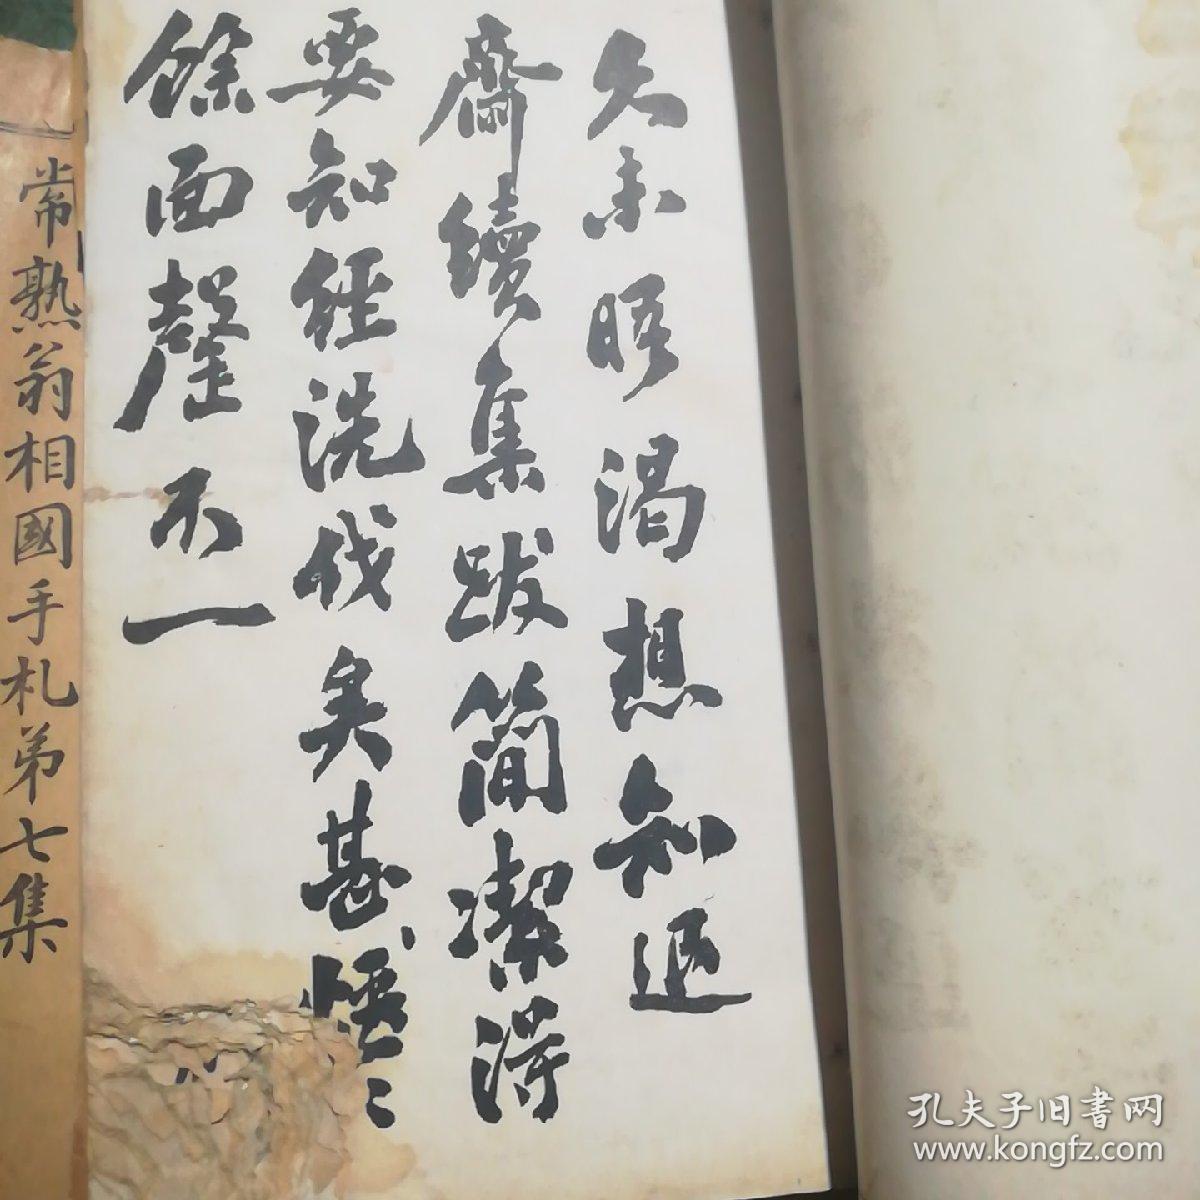 久未晤渴想知退
齋續集跋簡潔得
要知經洗伐矣甚
餘面罄不一
常熟翁相國手札弟七集
孔夫子旧書网
www.kongfz.com